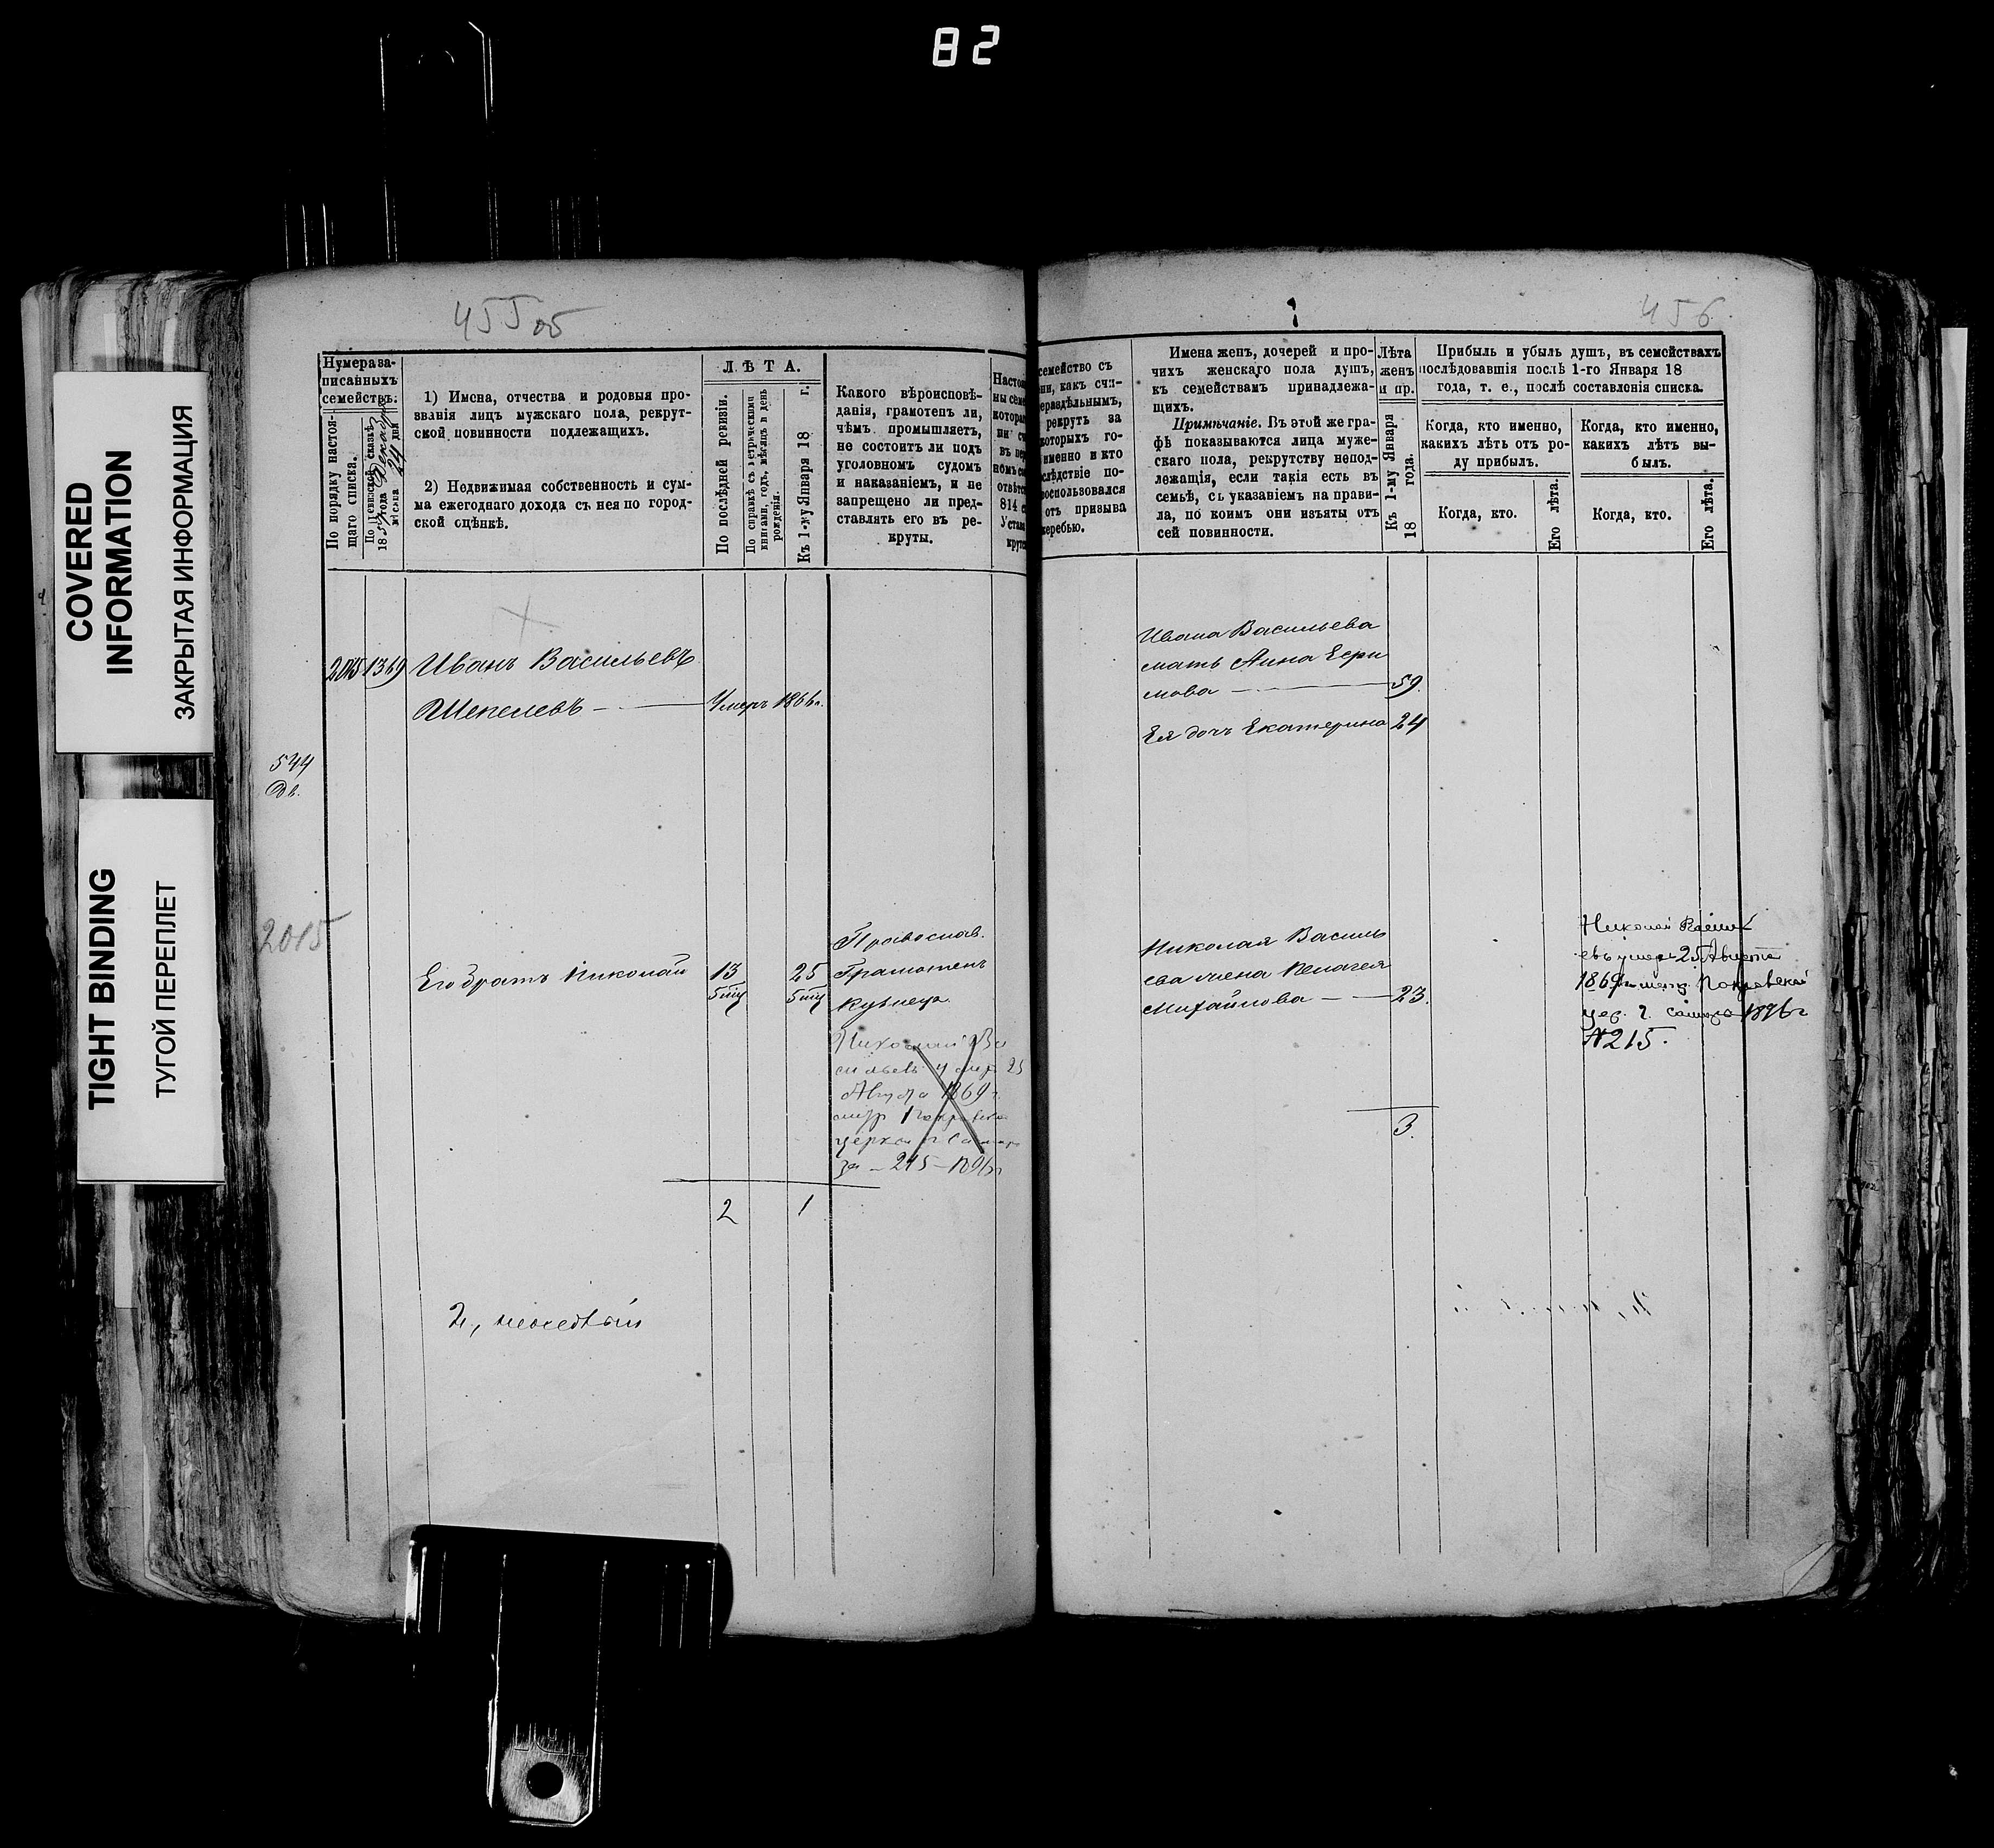 82
COVERED
INFORMATION
ЗАКРЫТАЯ ИНФОРМАЦИЯ
TIGHT BINDING
ТУГОЙ ПЕРЕПЛЕТ
455 об
Нумера за-
писанныхъ
семействъ:
По порядку настоя-
щаго списка.
По ревизской сказкѣ
18 года
мѣсяца 24 дня
1) Имена, отчества и родовыя про-
званія лицъ мужскаго пола, рекрут-
ской повинности подлежащихъ.
2) Недвижимая собственность и сум-
ма ежегоднаго дохода съ нея по город-
ской оцѣнкѣ.
ЛѢТА.
По послѣдней ревизіи.
По справкѣ съ метрическими
книгами, годъ, мѣсяцъ и день
рожденія.
Къ 1-му Января 18 г.
Какого вѣроисповѣ-
данія, грамотенъ ли,
чѣмъ промышляетъ,
не состоитъ ли подъ
уголовнымъ судомъ
и наказаніемъ, и не
запрещено ли пред-
ставлять его въ ре-
круты.
2015 1369 Иванъ Васильевъ
Шепелевъ — Умеръ 1866 г.
544
2015
Его братъ Николай 13 25
Православ.
Грамотенъ
Кузнецъ
Николай Ва
сильевъ умер 25
Августа 1869 г.
Покровской
церкви г Самары
за – 215 – 1896 г
2 1
2,
456
семейство съ
ни, какъ счи-
ераздѣльнымъ,
рекрутъ за
которыхъ го-
именно и кто
слѣдствіе по-
воспользовался
отъ призыва
жеребью.
Имена женъ, дочерей и про-
чихъ женскаго пола душъ,
къ семействамъ принадлежа-
щихъ.
Примѣчаніе. Въ этой же гра-
фѣ показываются лица муже-
скаго пола, рекрутству непод-
лежащія, если такія есть въ
семьѣ, съ указаніемъ на прави-
ла, по коимъ они изъяты отъ
сей повинности.
Лѣта
женъ
и пр.
Къ 1-му Января
18 года.
Прибыль и убыль душъ, въ семействахъ
послѣдовавшія послѣ 1-го Января 18
года, т. е., послѣ составленія списка.
Когда, кто именно,
какихъ лѣтъ отъ ро-
ду прибылъ.
Когда, кто именно,
какихъ лѣтъ вы-
былъ.
Когда, кто.
Его лѣта.
Когда, кто.
Его лѣта.
Ивана Васильева
мать Анна Ефи
мова — 59.
Ея дочь Екатерина 24
Николая Василь
ева жена Пелагея
Михайлова — 23.
3.
Николай Василь
евъ умеръ 25 Августа
1869 г Покровской
цер. г. Самары 1896 г
№ 215.